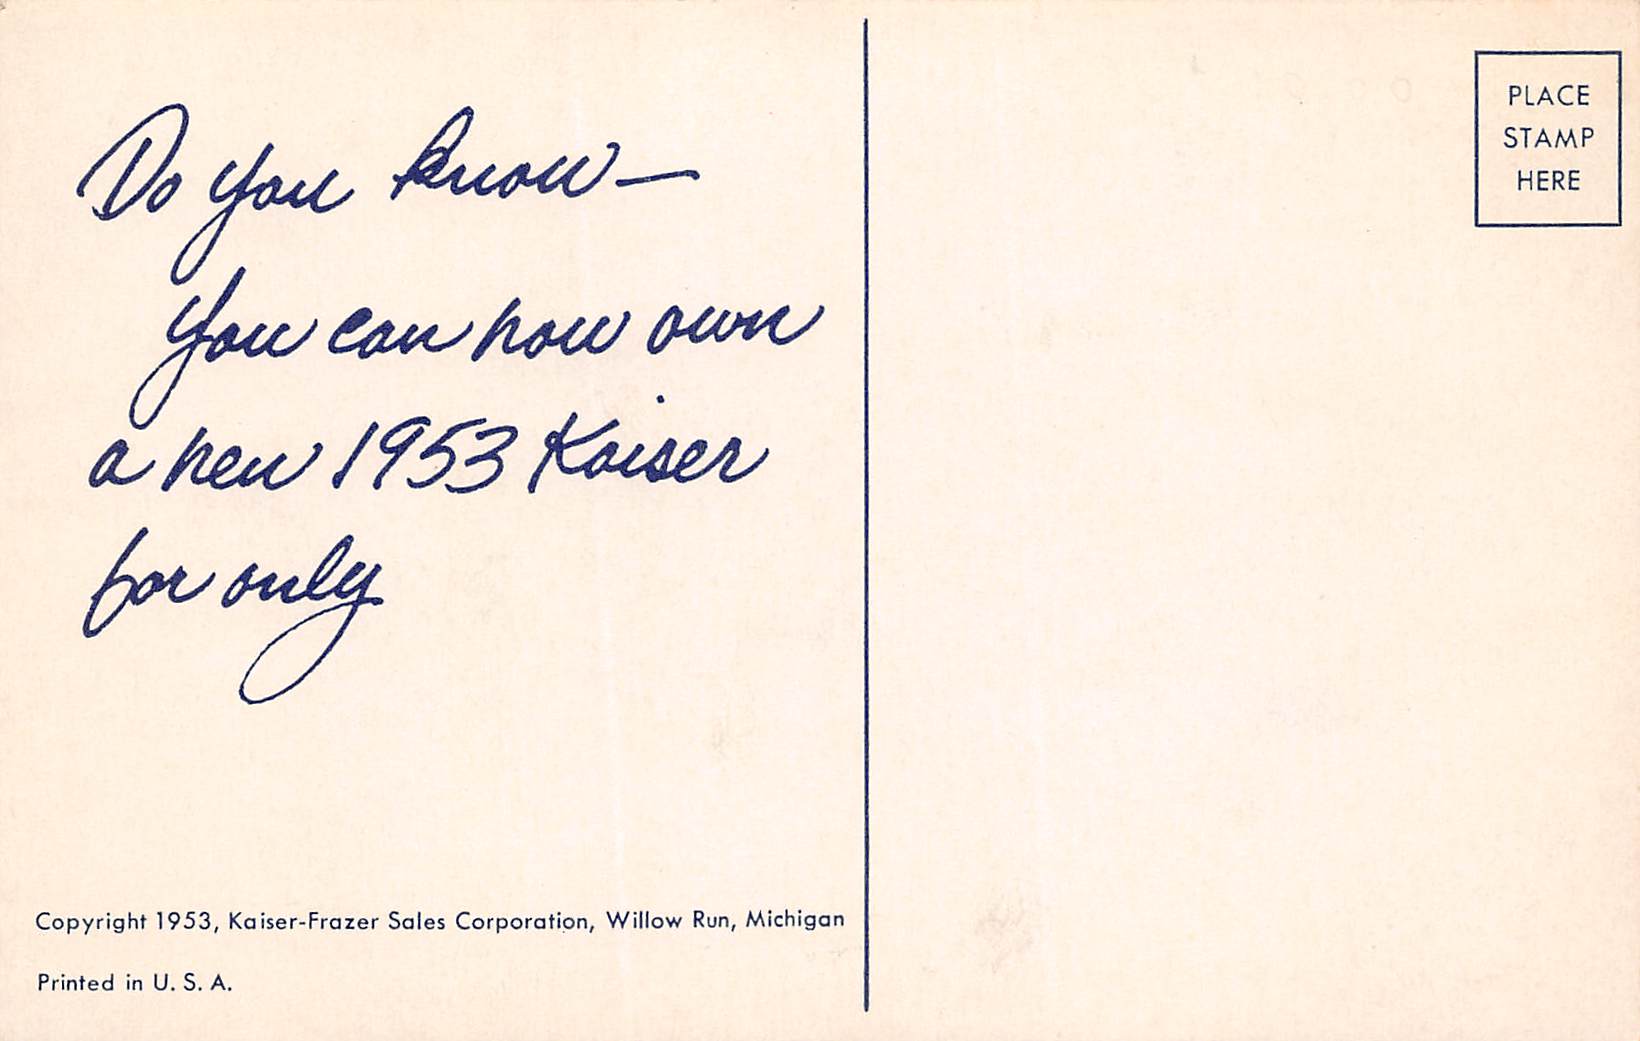 Do you know—
you can now own
a new 1953 Kaiser
for only
Copyright 1953, Kaiser-Frazer Sales Corporation, Willow Run, Michigan
Printed in U. S. A.
PLACE
STAMP
HERE